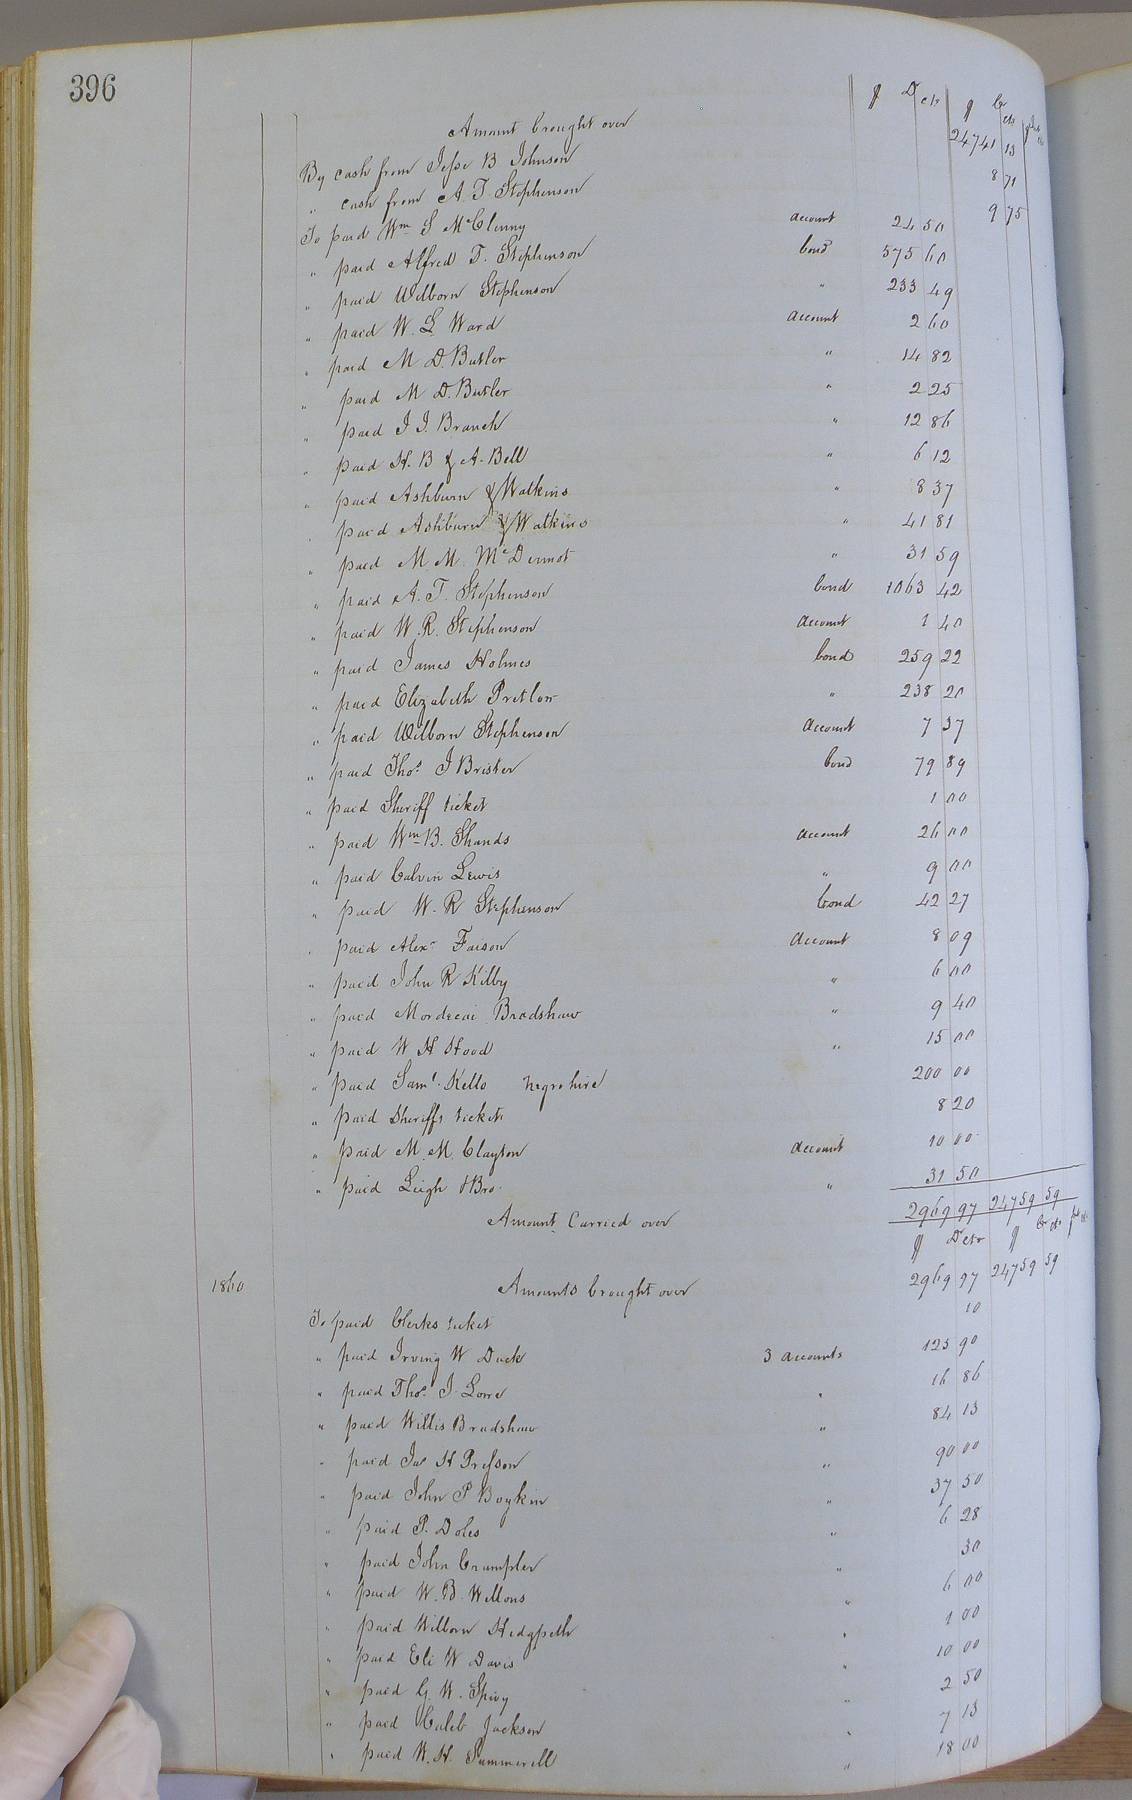 396
$ Dr cts $ Cr cts
Amount brought over 24741 13
By cash from Jesse B Johnson 8 71
" cash from A. T. Stephenson 9 75
To paid Wm S McClenny account 24 50
" paid Alfred T. Stephenson bond 575 60
" paid Wilborn Stephenson " 233 49
" paid W. L. Ward account 2 60
" paid M D. Butler " 14 82
" paid M D. Butler " 2 25
" paid J J. Branch " 12 86
" paid H. B & A. Bell " 6 12
" paid Ashburn & Watkins " 8 37
" paid Ashburn & Watkins " 41 81
" paid M. M. McDermot " 31 59
" paid A. T. Stephenson bond 1063 42
" paid W. R. Stephenson account 1 40
" paid James Holmes bond 259 22
" paid Elizabeth Pretlow " 238 20
" paid Wilborn Stephenson account 7 37
" paid Thos. J Brister bond 79 89
" paid Sheriff ticket 1 00
" paid Wm B. Shands account 26 00
" paid Calvin Lewis " 9 00
" paid W. R Stephenson bond 42 27
" paid Alexr Faison account 8 09
" paid John R Kilby " 6 00
" paid Mordecai Bradshaw " 9 40
" paid W H Hood " 15 00
" paid Saml. Kello negro hire 200 00
" paid Sheriffs tickets 8 20
" paid M. M. Clayton account 10 00
" paid Leigh & Bro. " 31 50
Amount Carried over 2969 97 24759 59
$ Dr cts $ Cr cts
1860 Amounts brought over 2969 97 24759 59
To paid Clerks ticket 10
" paid Irving W Duck 3 accounts 123 90
" paid Thos. J. Lowe " 16 86
" paid Willis Bradshaw " 84 13
" paid Jas H Presson " 90 00
" paid John P Boykin " 37 50
" paid P. Doles " 6 28
" paid John Crumpler " 30
" paid W. B. Wellons " 6 00
" paid Wilborn Hedgpeth " 1 00
" paid Eli W Davis " 10 00
" paid G. W. Spivy " 2 50
" paid Caleb Jackson " 7 13
" paid W. H. Summerell " 18 00